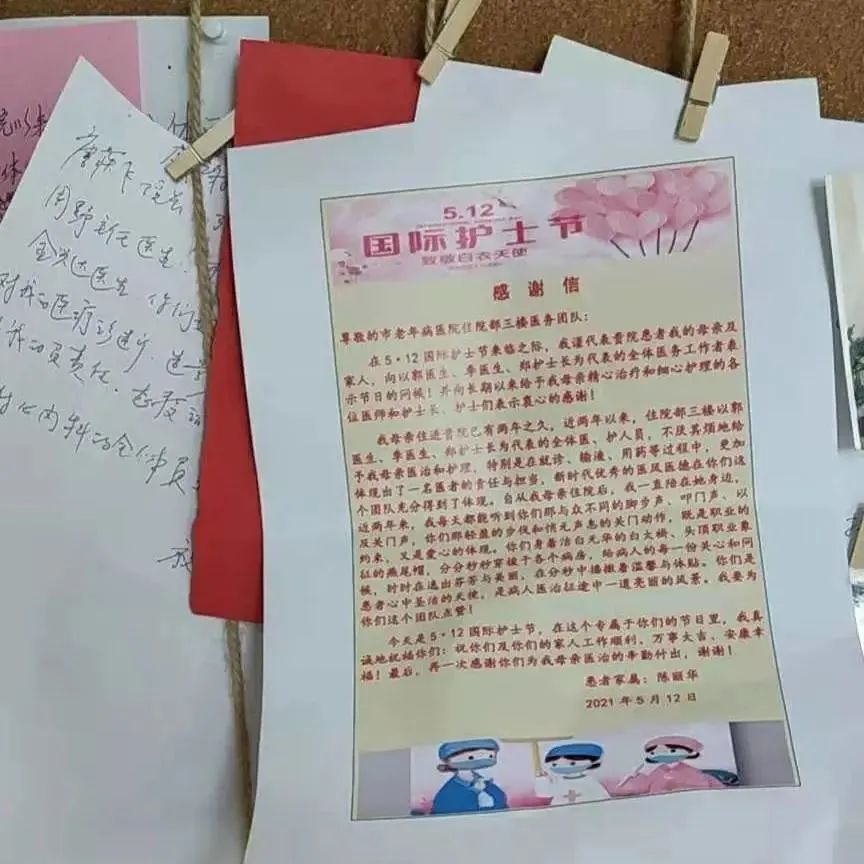 5.12
国际护士节
致敬白衣天使
感谢信
尊敬的市老年病医院住院部三楼医务团队:
在5·12国际护士节来临之际,我谨代表贵院患者我的母亲及
家人,向以郭医生、季医生、郑护士长为代表的全体医务工作者表
示节日的问候!并向长期以来给予我母亲精心治疗和细心护理的各
位医师和护士长、护士们表示衷心的感谢!
我母亲住进贵院已有两年之久,近两年以来,住院部三楼以郭
医生、季医生、郑护士长为代表的全体医、护人员,不厌其烦地给
予我母亲医治和护理,特别是在就诊、输液、用药等过程中,更加
体现出了一名医者的责任与担当,新时代优秀的医风医德在你们这
个团队充分得到了体现。自从我母亲住院后,我一直陪在她身边,
近两年来,我每天都能听到你们那与众不同的脚步声、叩门声、以
及关门声,你们那轻盈的步伐和悄无声息的关门动作,既是职业的
约束,又是爱心的体现。你们身着洁白无华的白大褂、头顶职业象
征的燕尾帽,分分秒秒穿梭于各个病房,给病人的每一份关心和问
候,时时在送出芬芳与美丽,在分秒中播撒着温馨与体贴。你们是
患者心中圣洁的天使,是病人医治征途中一道亮丽的风景。我要为
你们这个团队点赞!
今天是5·12国际护士节,在这个专属于你们的节日里,我真
诚地祝福你们:祝你们及你们的家人工作顺利、万事大吉、安康幸
福!最后,再一次感谢你们为我母亲医治的辛勤付出,谢谢!
患者家属:陈丽华
2021年5月12日
周野主任医生
金兴达医生 你们
对我的医疗诊进步
的责任
内科的全体员